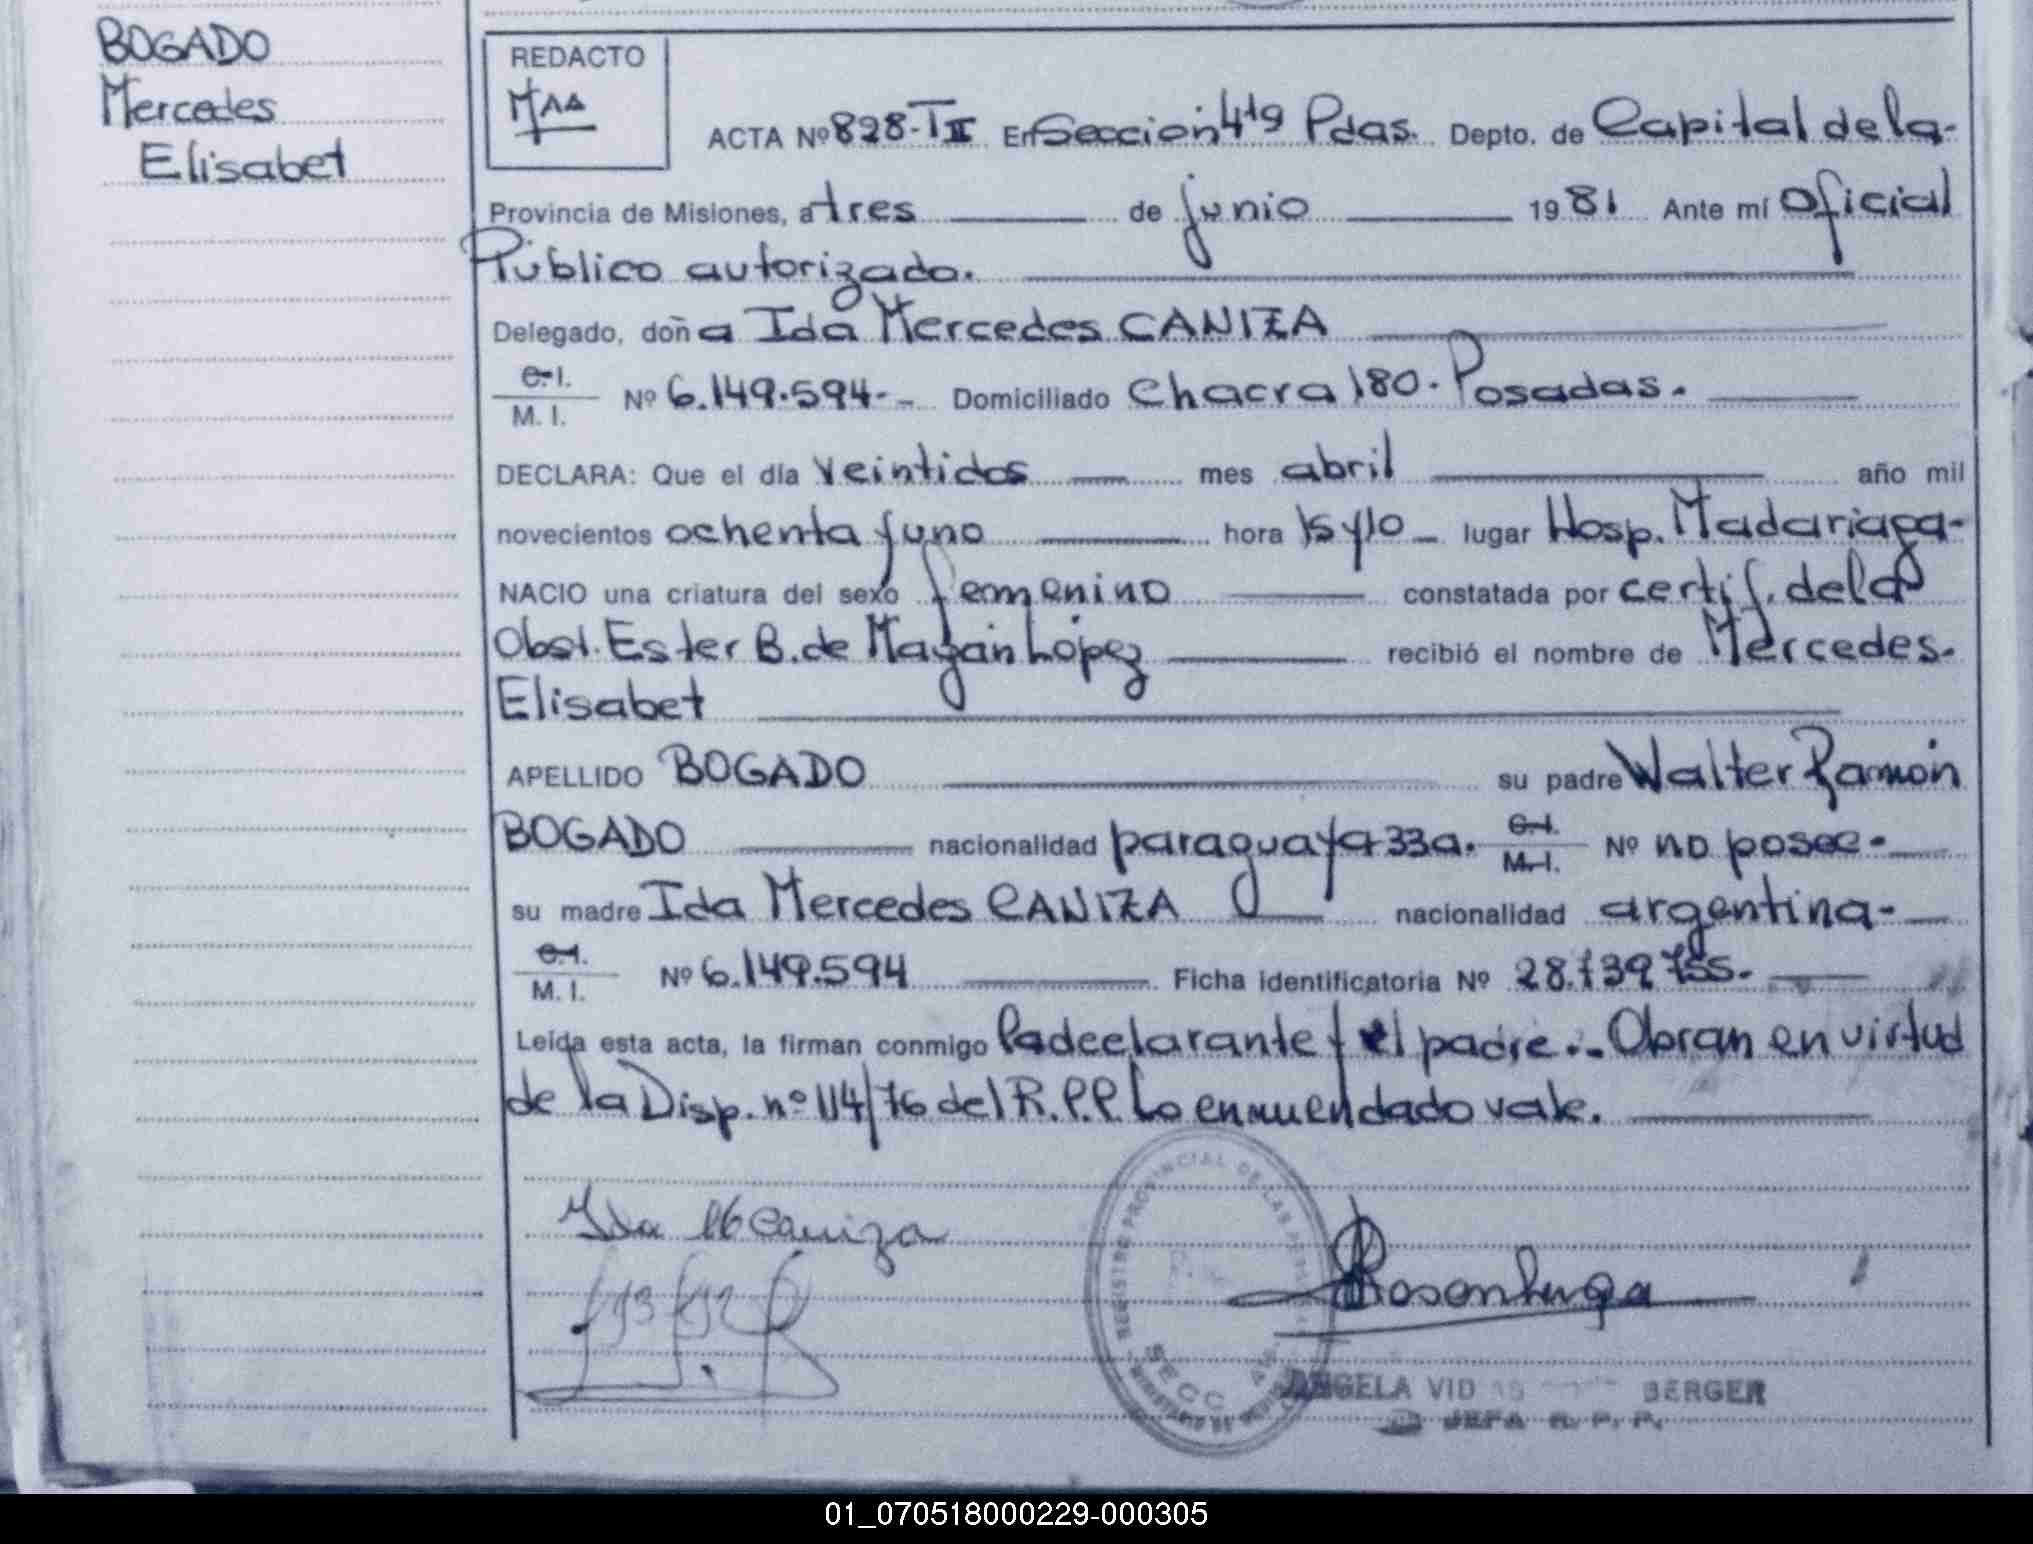 BOGADO
Mercedes
Elisabet
REDACTO
ACTA Nº 828-TII En Sección 4ta Pdas. Depto. de Capital de la-
Provincia de Misiones, a tres de junio 1981 Ante mí Oficial
Público autorizado.
Delegado, doña Ida Mercedes CANIZA
C.I.
M. I. Nº 6.149.594.- Domiciliado Chacra 180. Posadas.
DECLARA: Que el día veintidos mes abril año mil
novecientos ochenta y uno hora 15 y 10 lugar Hosp. Madariaga-
NACIO una criatura del sexo femenino constatada por certif. de la
Obst. Ester B. de Mazan López recibió el nombre de Mercedes.
Elisabet
APELLIDO BOGADO su padre Walter Ramón
BOGADO nacionalidad paraguaya 33a. C.I.
M.I. Nº no posee.
su madre Ida Mercedes CANIZA nacionalidad argentina-
C.I.
M. I. Nº 6.149.594 Ficha identificatoria Nº 28.739.755.
Leída esta acta, la firman conmigo la declarante y el padre.- Obran en virtud
de la Disp. nº 114/76 del R.P.P. Lo enmuendado vale.
Ida M Caniza
REGISTRO PROVINCIAL DE LAS
SECC. 4ta
ANGELA VID BERGER
JEFA R. P. P.
01_070518000229-000305